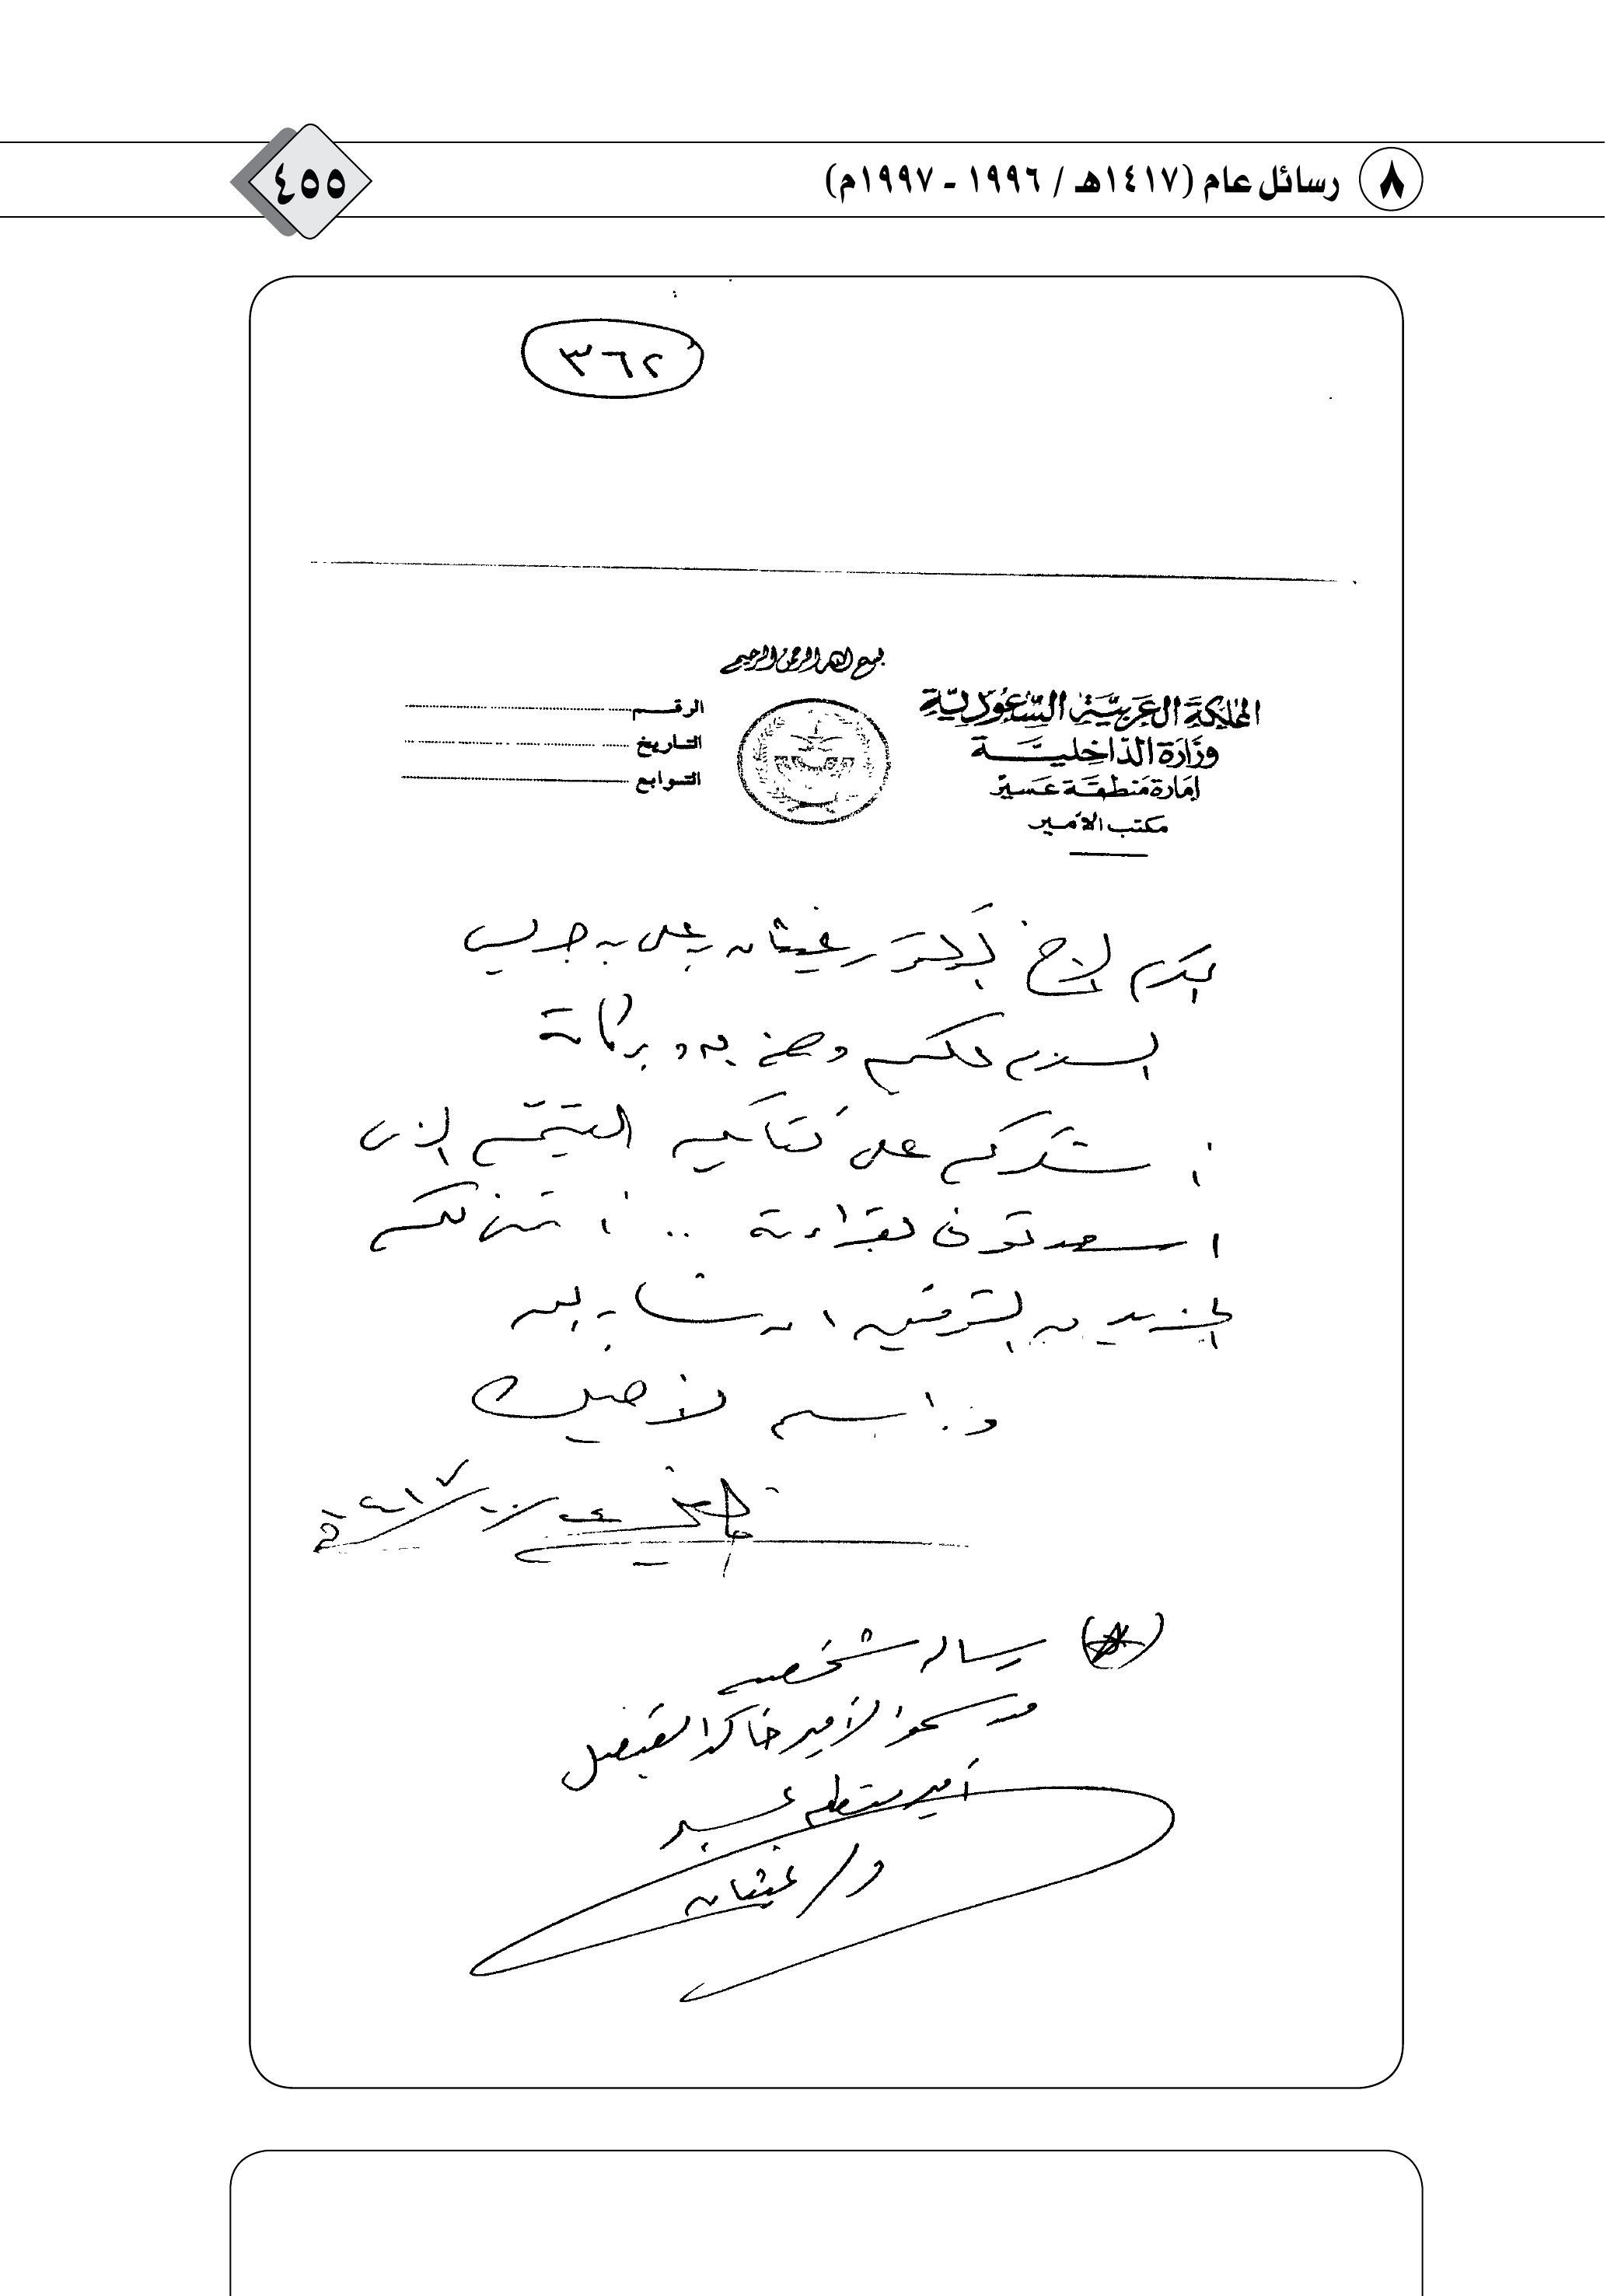 ٨ رسائل عام (١٤١٧هـ / ١٩٩٦ - ١٩٩٧م)
٤٥٥
٣٦٢
بسم الله الرحمن الرحيم
المملكة العربية السعودية
وزارة الداخلية
إمارة منطقة عسير
مكتب الأمير
الرقم
التاريخ
التوابع
المكرم الأخ الدكتور غيثان بن علي بن جريس
السلام عليكم ورحمة الله وبركاته
أشكركم على كتابكم القيم الذي
اسعدتوني بقراءته .. أتمنى لكم
المزيد من التوفيق ان شاء الله
و اسلم لأخيك
١٤١٧هـ
رسالة شخصية
من سمو الأمير خالد الفيصل
أمير منطقة عسير
د/ غيثان